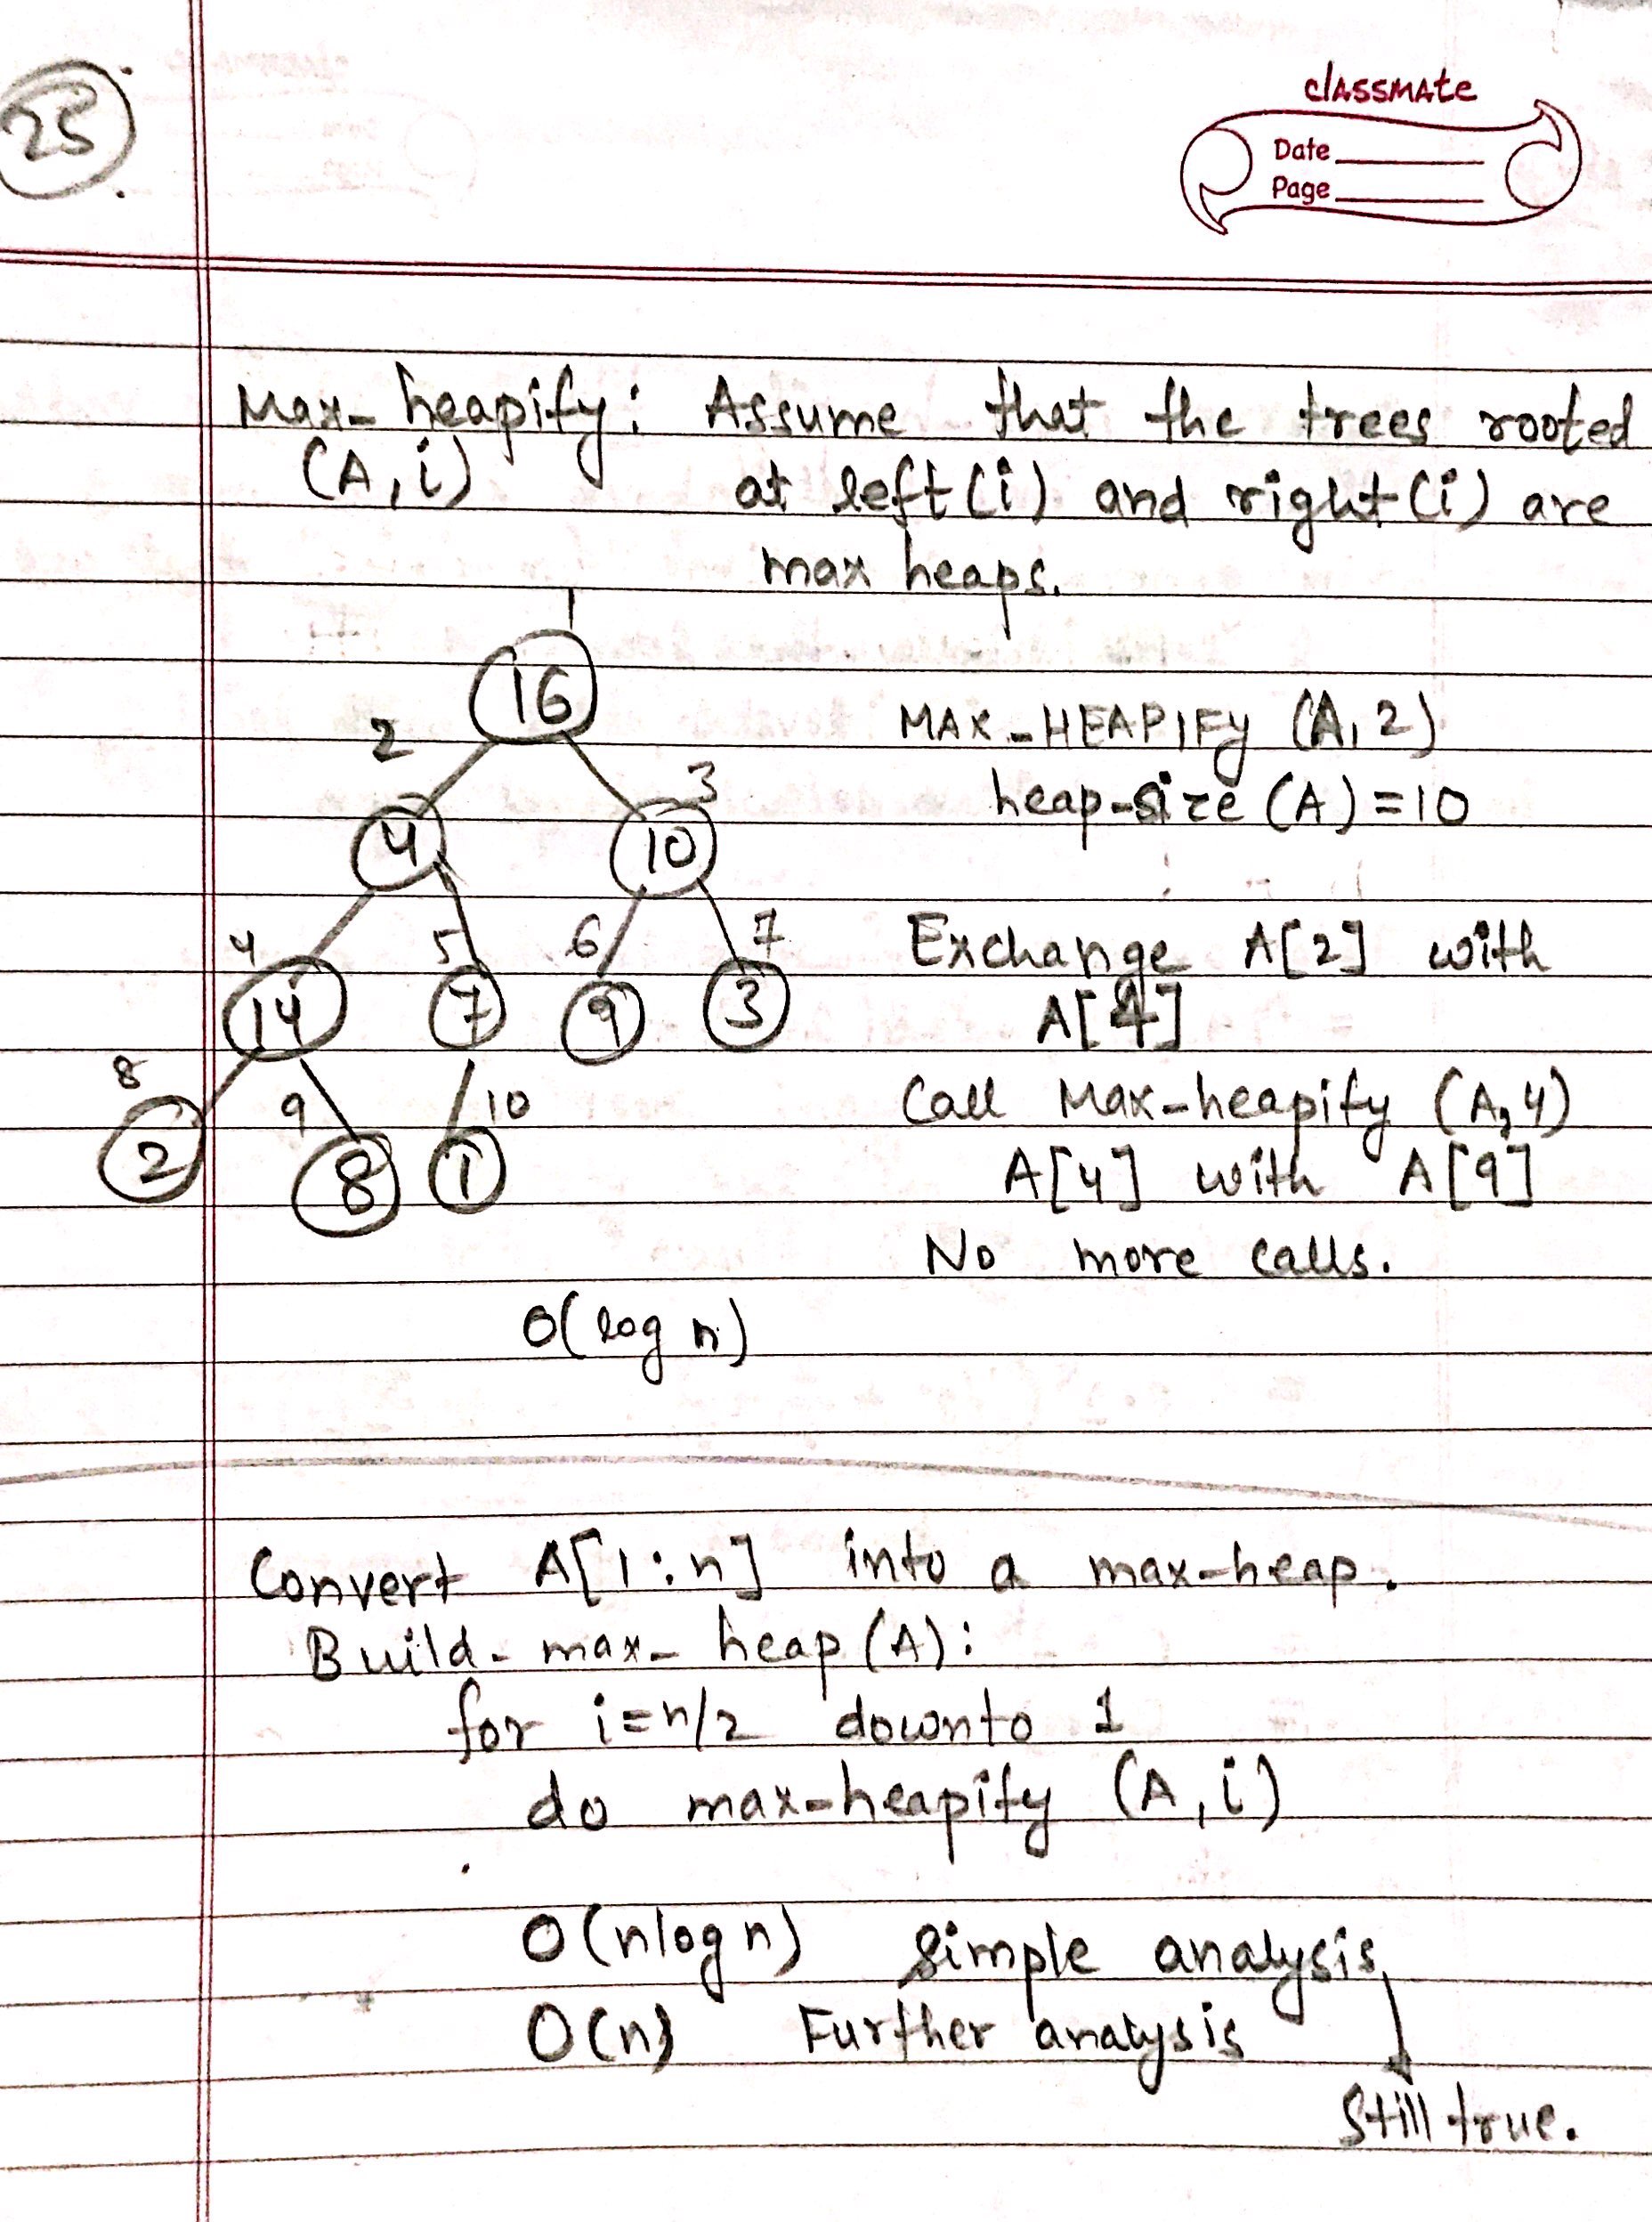 25
classmate
Date
Page
Max-heapify: Assume that the trees rooted
(A, i) at left(i) and right(i) are
max heaps.
1
16
2
3
4
10
4
5
6
7
14
7
9
3
8
9
10
2
8
1
MAX-HEAPIFY (A, 2)
heap-size (A) = 10
Exchange A[2] with
A[4]
Call Max-heapify (A, 4)
A[4] with A[9]
No more calls.
O(log n)
Convert A[1:n] into a max-heap.
Build-max-heap(A):
for i=n/2 downto 1
do max-heapify (A, i)
O(nlog n) Simple analysis
O(n) Further analysis
Still true.